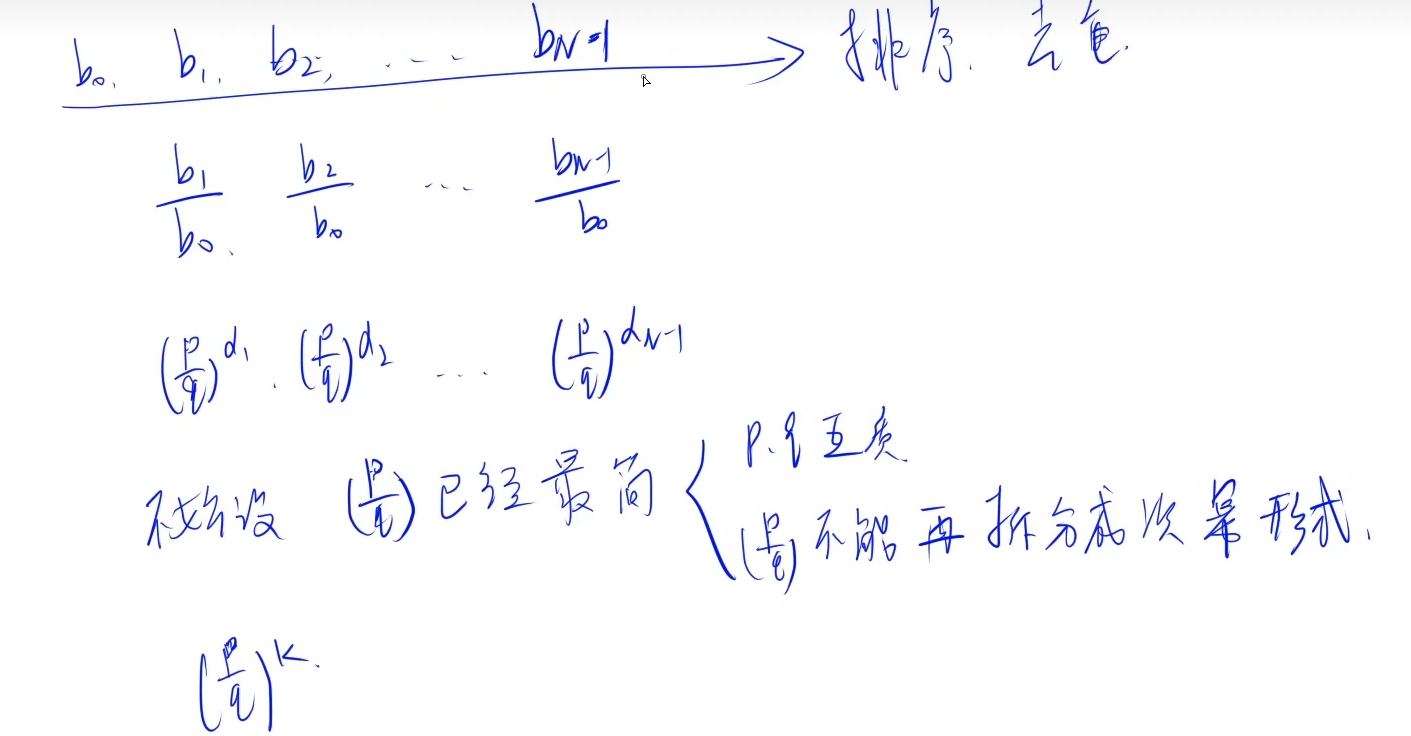 b₀, b₁, b₂, ... b_{N-1} → 排序, 去重.
b₁/b₀, b₂/b₀ ... b_{N-1}/b₀
(p/q)^{d₁}, (p/q)^{d₂} ... (p/q)^{d_{N-1}}
不妨设 (p/q) 已经最简 { p.q 互质
(p/q) 不能再拆分成次幂形式.
(p/q)^K.